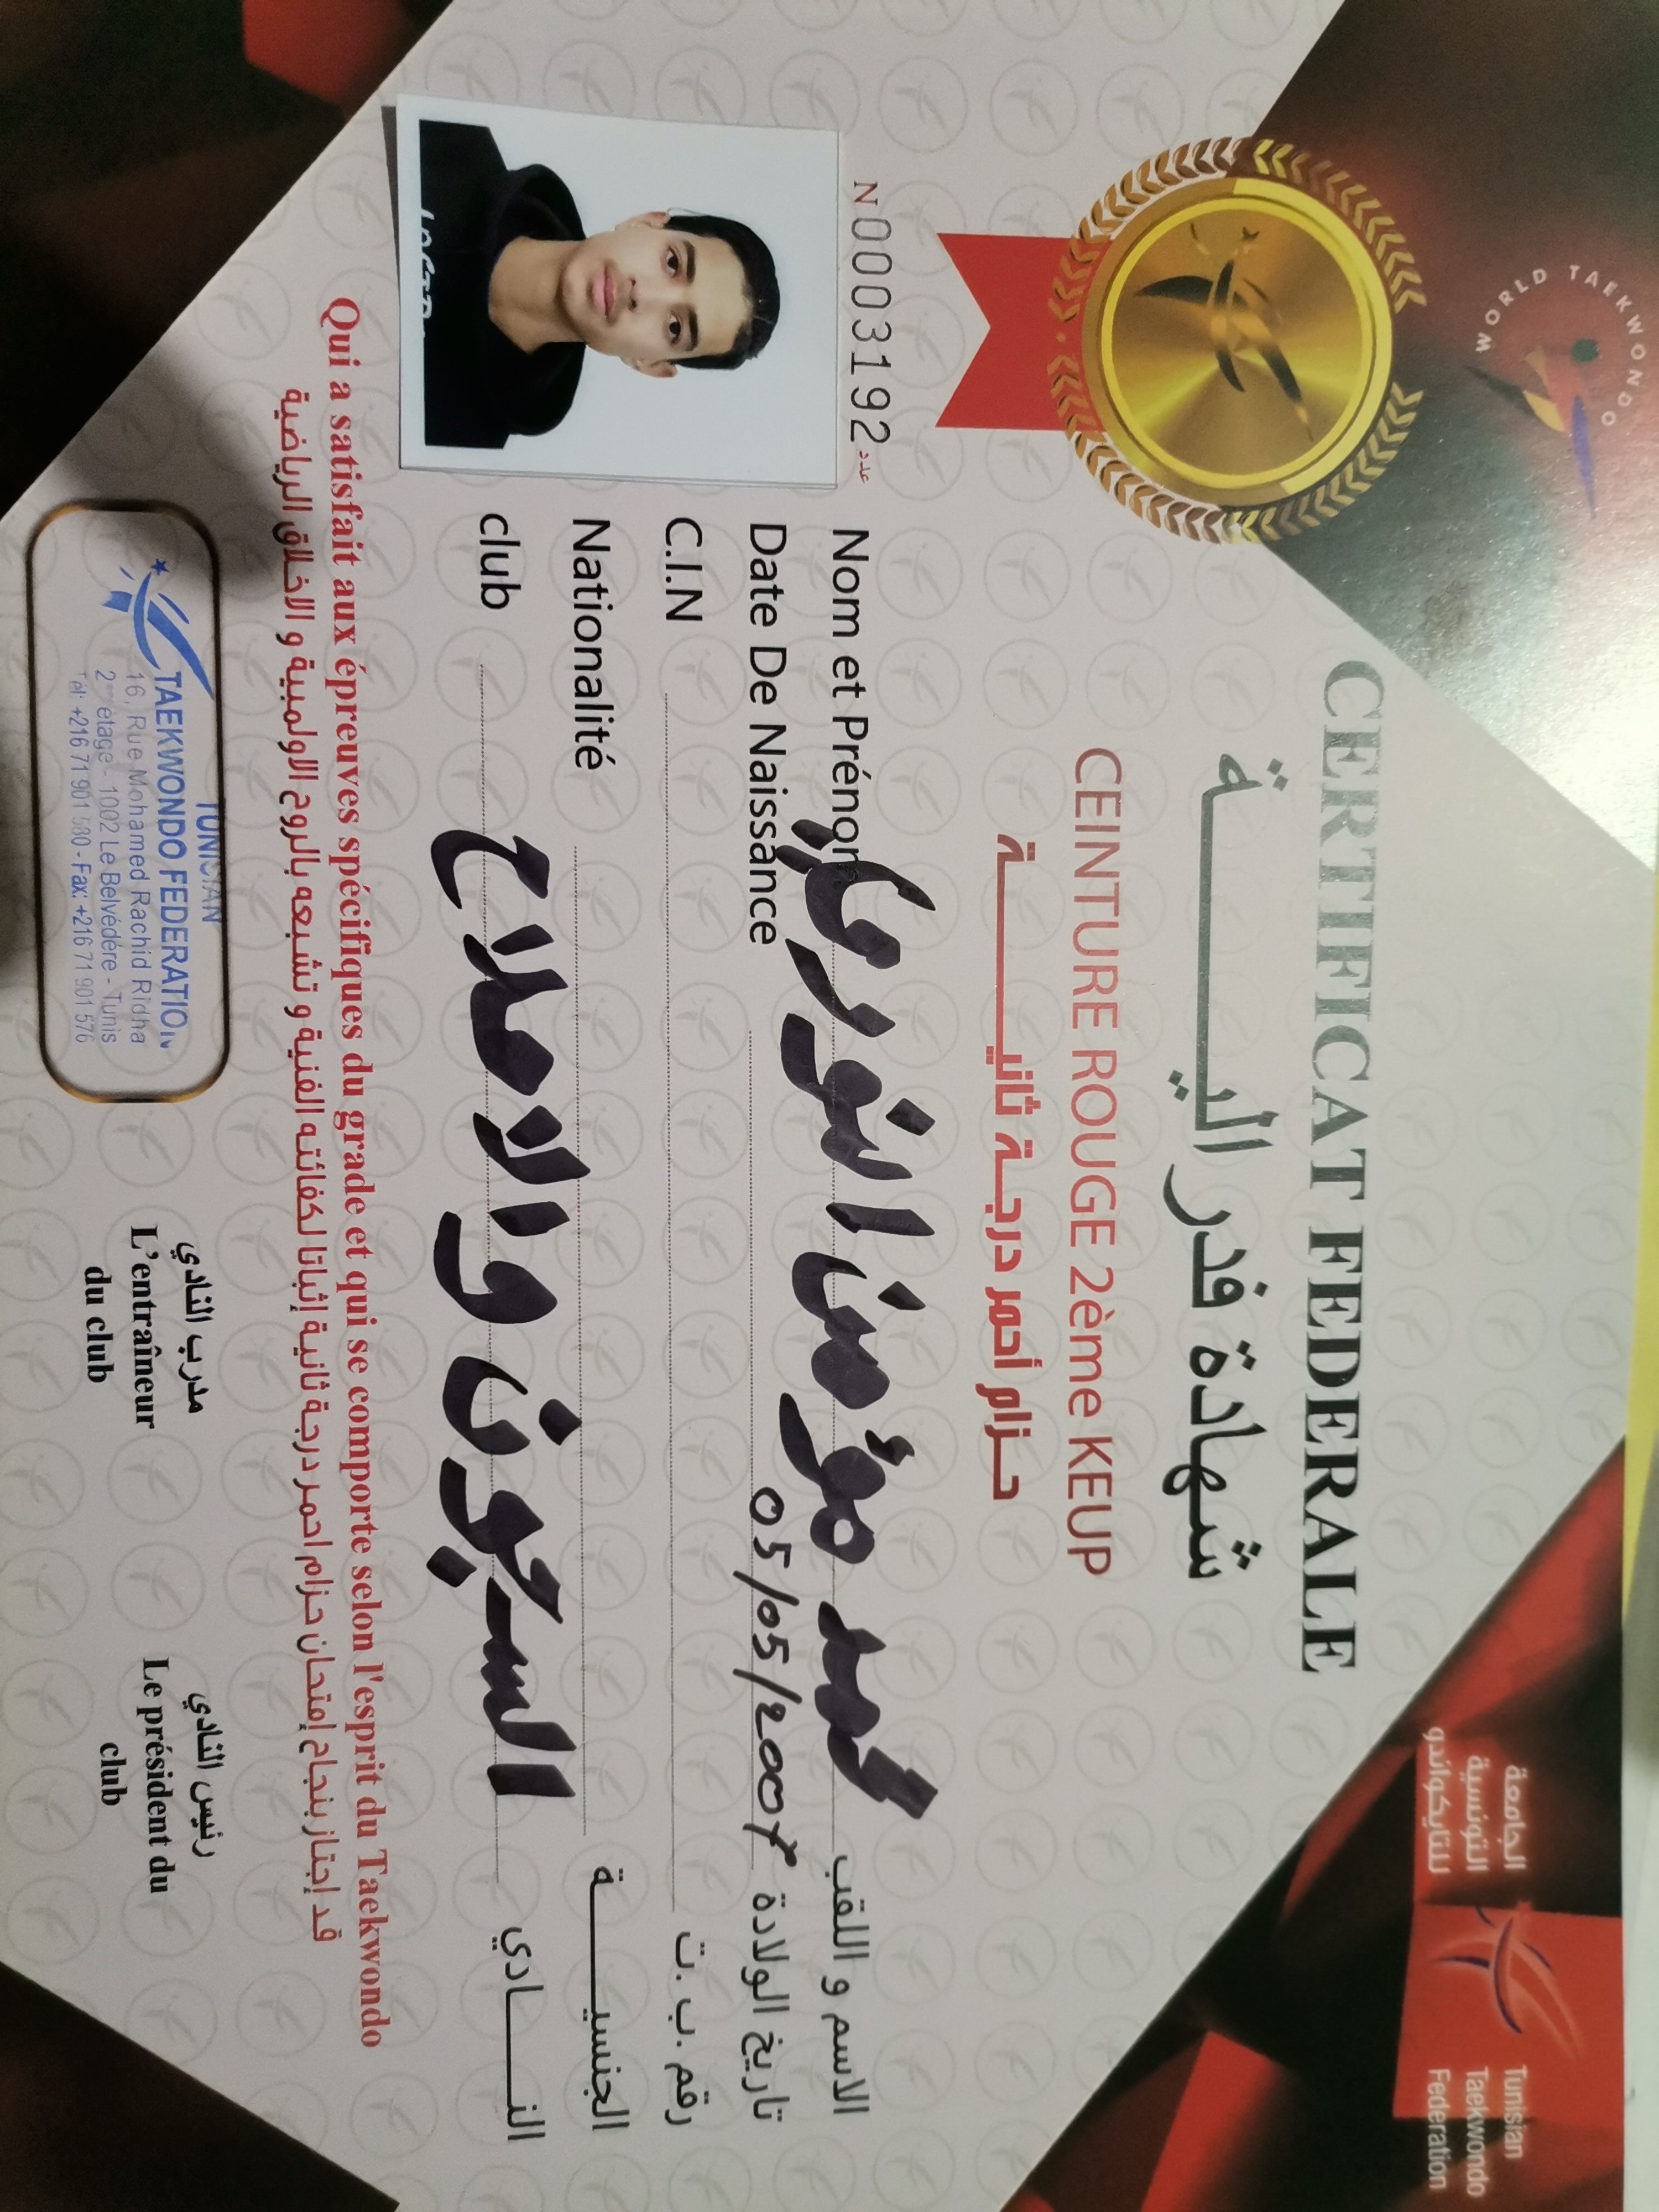 WORLD TAEKWONDO
الجامعة
التونسية
للتايكواندو
Tunisian
Taekwondo
Federation
CERTIFICAT FEDERALE
شهادة فدراليـــــــة
CEINTURE ROUGE 2ème KEUP
حـزام أحمر درجـة ثانيـــــــة
N 0003192 عدد
Nom et Prénom محمد مؤمن النوري الاسم و اللقب
Date De Naissance 05/05/2007 تاريخ الولادة
C.I.N رقم .ب .ت
Nationalité الجنسيـــــــة
club السجون والاصلاح النـــــادي
Qui a satisfait aux épreuves spécifiques du grade et qui se comporte selon l'esprit du Taekwondo
قد إجتاز بنجاح إمتحان حزام احمر درجة ثانية إثباتا لكفائته الفنية و تشبعه بالروح الاولمبية و الاخلاق الرياضية
TUNISIAN
TAEKWONDO FEDERATION
16, Rue Mohamed Rachid Ridha
2 etage - 1002 Le Belvédère - Tunis
Tél: +216 71 901 580 - Fax: +216 71 901 576
مدرب النادي
L'entraîneur
du club
رئيس النادي
Le président du
club